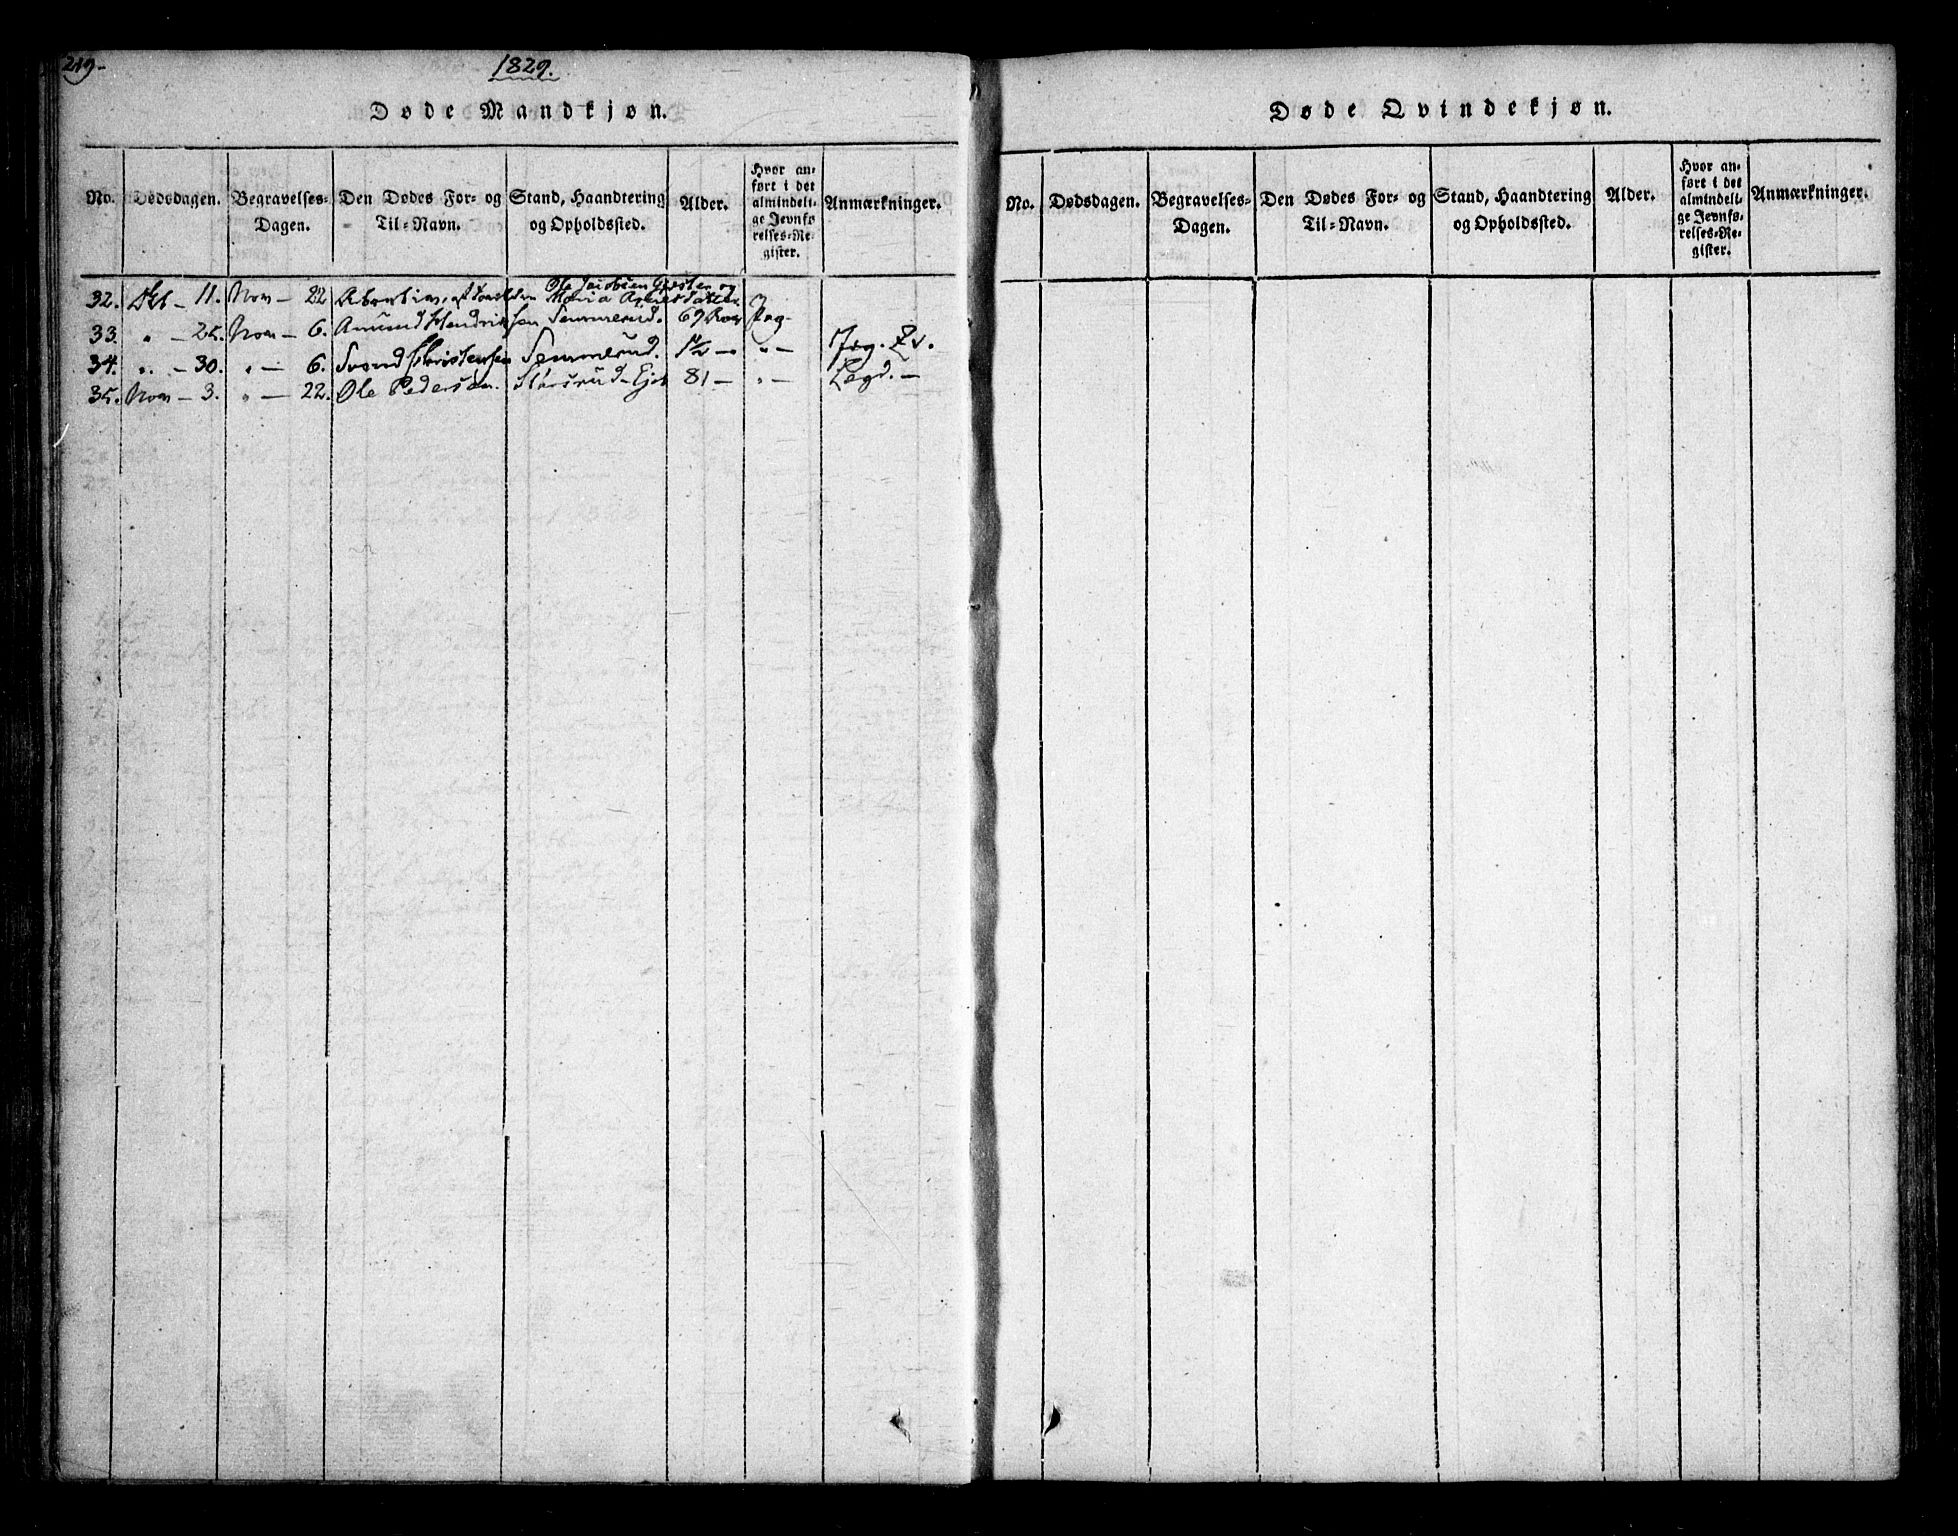 219-
1829.
Døde Mandkjøn.
No. Dødsdagen. Begravelses-Dagen. Den Dødes For- og Til-Navn. Stand, Haandtering og Opholdssted. Alder. Hvor anført i det almindelige Jevnførelses-Register. Anmærkninger.
32. Oct - 11. Nov - 22 Ole Jacobsen og
Maria
33. " - 25. Nov - 6. Amund Hendriksen Semmerud. 69 Aar Ing-
34. " - 30. " - 6. Svend Christensen Semmerud. 1½ - " -
35. Nov - 3. " - 22. Ole Pedersen. Storsrud- 81 - " - Legd. -
Døde Qvindekjøn.
No. Dødsdagen. Begravelses-Dagen. Den Dødes For- og Til-Navn. Stand, Haandtering og Opholdssted. Alder. Hvor anført i det almindelige Jevnførelses-Register. Anmærkninger.